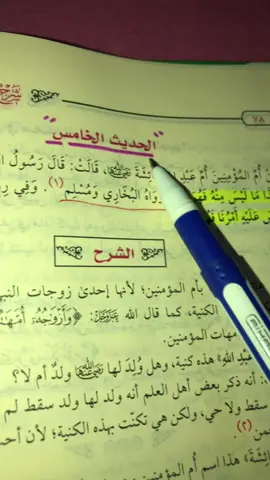 شرح
٧٨
"الحديث الخامس"
أُمِّ المُؤْمِنِينَ أُمِّ عَبْدِ عَائِشَةَ رضي الله عنها، قَالَتْ: قَالَ رَسُولُ
مَا لَيْسَ مِنْهُ رَوَاهُ البُخَارِي وَمُسْلِم (١). وَفِي
عَلَيْهِ أَمْرُنَا
الشرح
بأم المؤمنين؛ لأنها إحدى زوجات النبي
الكنية، كما قال الله ﴿وَأَزْوَاجُهُ أُمَّهَاتُهُمْ
مهات المؤمنين.
عبد الله» هذه كنية، وهل وُلِدَ لها رضي الله عنها ولدٌ أم لا؟
أنه ذكر بعض أهل العلم أنه ولد لها ولد سقط لم
سقط ولا حي، ولكن هي تكنّت بهذه الكنية؛ لأن أحب
(٢).
هذا اسم أم المؤمنين